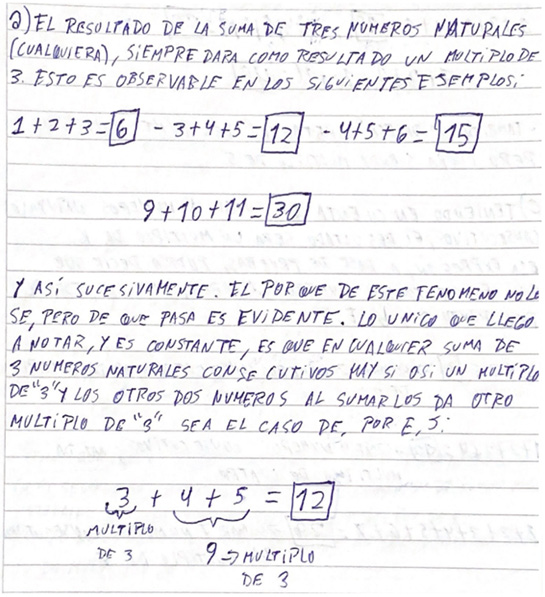 2) EL RESULTADO DE LA SUMA DE TRES NUMEROS NATURALES
(CUALQUIERA), SIEMPRE DARA COMO RESULTADO UN MULTIPLO DE
3. ESTO ES OBSERVABLE EN LOS SIGUIENTES EJEMPLOS:
1+2+3=6 - 3+4+5=12 - 4+5+6=15
9+10+11=30
Y ASÍ SUCESIVAMENTE. EL POR QUE DE ESTE FENOMENO NO LO
SE, PERO DE QUE PASA ES EVIDENTE. LO UNICO QUE LLEGO
A NOTAR, Y ES CONSTANTE, ES QUE EN CUALQUIER SUMA DE
3 NUMEROS NATURALES CONSECUTIVOS HAY SI O SI UN MULTIPLO
DE "3" Y LOS OTROS DOS NUMEROS AL SUMARLOS DA OTRO
MULTIPLO DE "3" SEA EL CASO DE, POR EJ:
3 + 4 + 5 = 12
MULTIPLO
DE 3
9 → MULTIPLO
DE 3